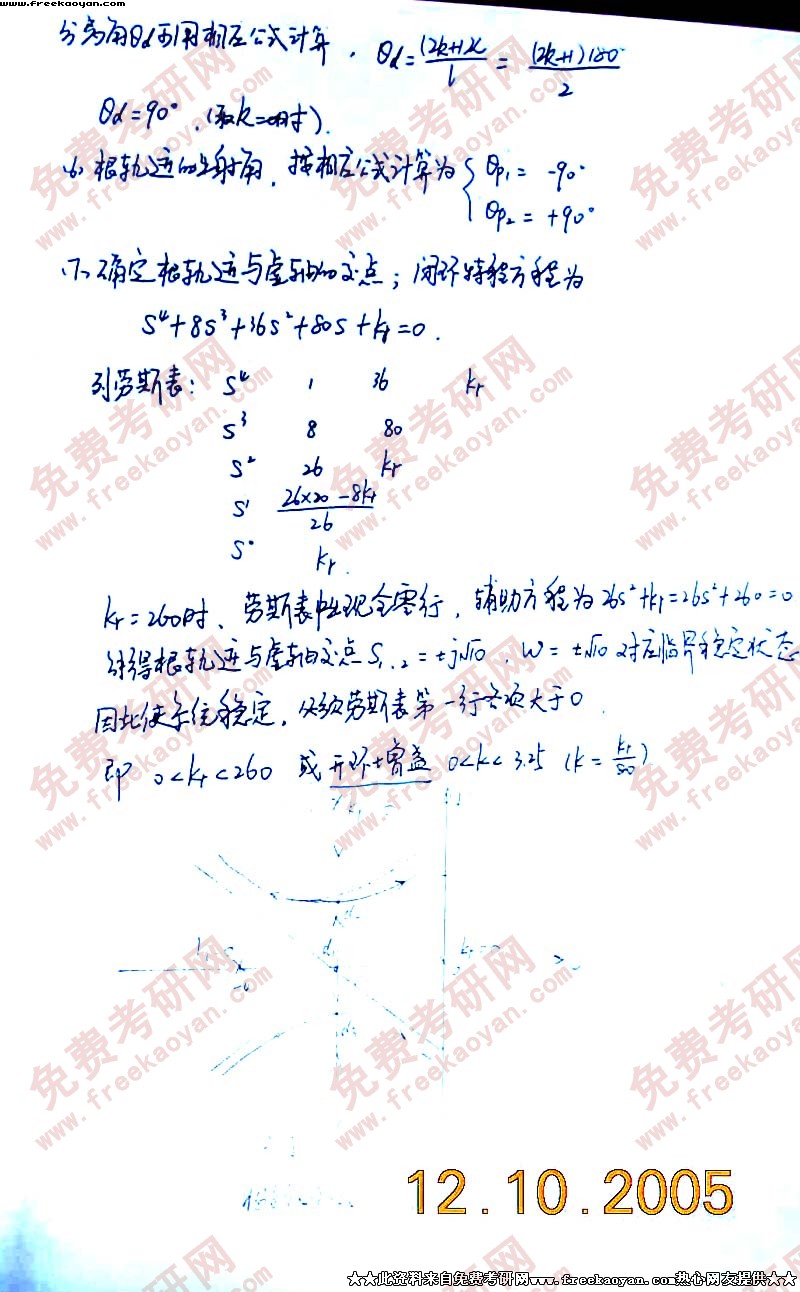 freekaoyan.com
分离角θd可用相应公式计算, θd=(2k+1)π/l = (2k+1)180°/2
θd=90°.(取k=0时).
(6) 根轨迹的出射角, 按相应公式计算为 { θp1 = -90°
θp2 = +90°
(7) 确定根轨迹与虚轴的交点; 闭环特征方程为
S⁴+8S³+36S²+80S+kr=0.
列劳斯表: S⁴ 1 36 kr
S³ 8 80
S² 26 kr
S¹ (26×20-8kr)/26
S⁰ kr.
kr=260时、劳斯表中出现全零行, 辅助方程为26s²+kr=26s²+260=0
解得根轨迹与虚轴交点S1.2=±j√10, W=±√10 对应临界稳定状态
因此使系统稳定, 必须劳斯表第一行各项大于0
即 0<kr<260 或开环增益 0<k<3.25 (k=kr/80)
12.10.2005
★★此资料来自免费考研网www.freekaoyan.com热心网友提供★★